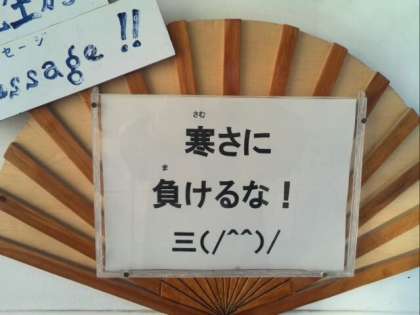 セージ
ssage !!
寒さに
負けるな！
三(/^^)/